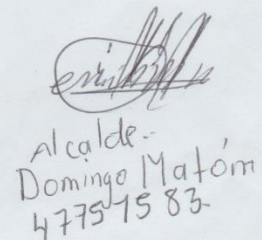 Alcalde.-
Domingo Matóm
47757583-